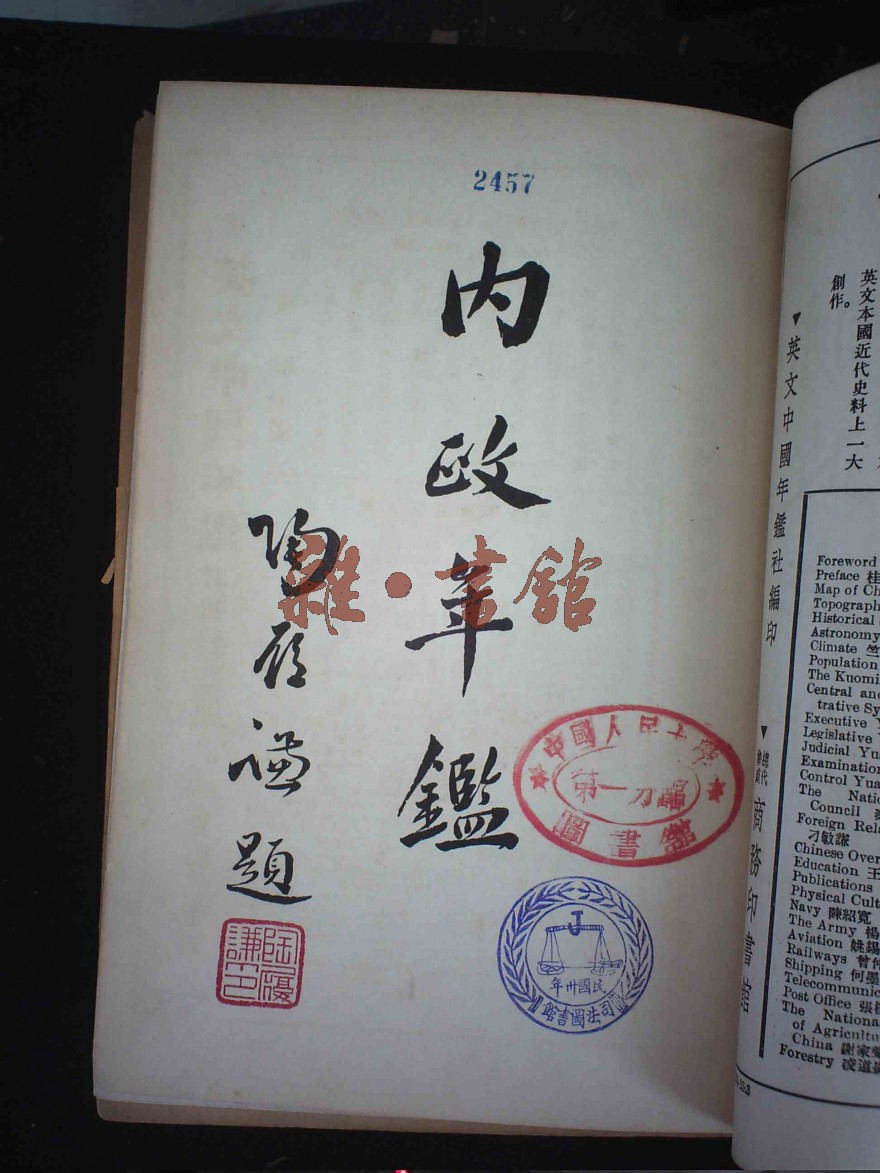 2457
内政年鑑
陶履謙題
陶履謙印
雜·書館
中國人民大學
第一分館
圖書館
民國卅年
司法圖書館
英文本國近代史料上一大
創作。
▼英文中國年鑑社編印
▼總代
商務印書館
Foreword
Preface 桂
Map of Ch
Topograph
Historical
Astronomy
Climate 竺
Population
The Kuomi
Central and
trative Sy
Executive Y
Legislative
Judicial Yu
Examination
Control Yua
The Natio
Council
Foreign Rela
刁敏謙
Chinese Over
Education 王
Publications
Physical Cult
Navy 陳紹寬
The Army 楊
Aviation 姚錫
Railways 曾仲
Shipping 何墨
Telecommunic
Post Office 張
The Nationa
of Agricultu
China 謝家聲
Forestry 凌道